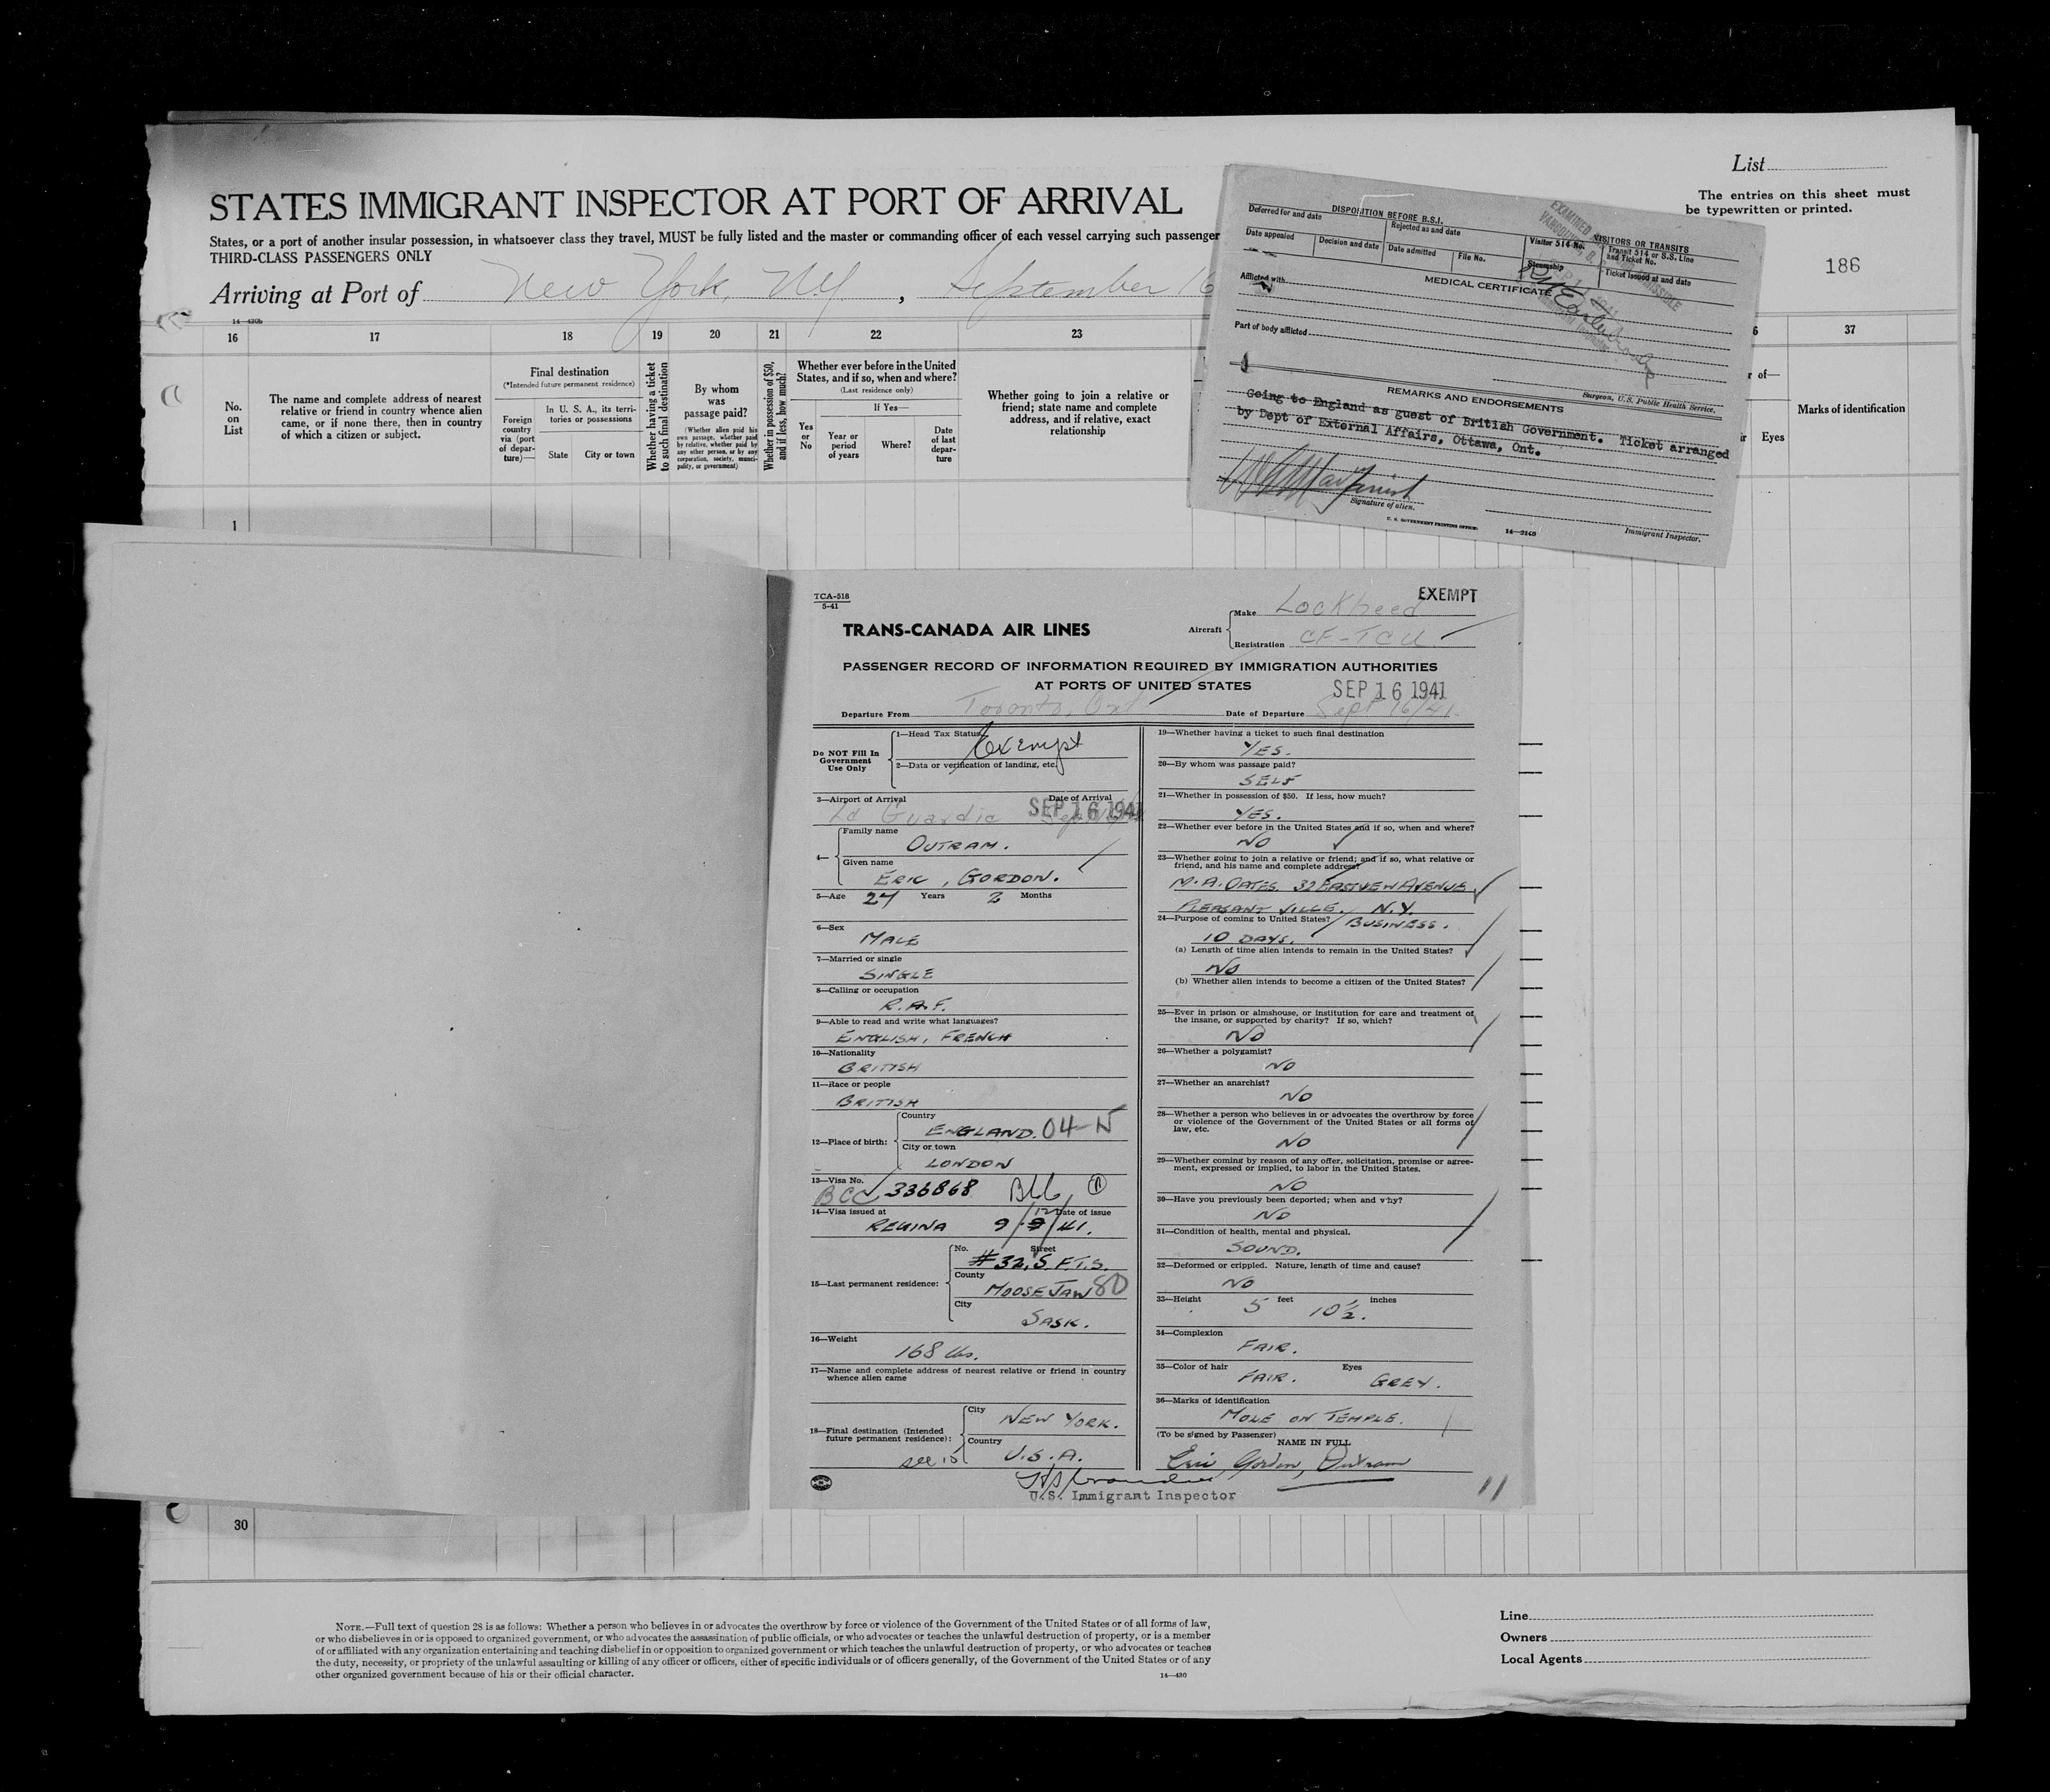 List
The entries on this sheet must
be typewritten or printed.
186
STATES IMMIGRANT INSPECTOR AT PORT OF ARRIVAL
States, or a port of another insular possession, in whatsoever class they travel, MUST be fully listed and the master or commanding officer of each vessel carrying such passenger
THIRD-CLASS PASSENGERS ONLY
Arriving at Port of New York, N.Y. , September 16
14—430b
16 17 18 19 20 21 22 23 37
No. on List
The name and complete address of nearest
relative or friend in country whence alien
came, or if none there, then in country
of which a citizen or subject.
Final destination
(*Intended future permanent residence)
Foreign country via (port of departure)—
In U. S. A., its territories or possessions
State
City or town
Whether having a ticket to such final destination
By whom was passage paid?
(Whether alien paid his own passage, whether paid by relative, whether paid by any other person, or by any corporation, society, municipality, or government)
Whether in possession of $50, and if less, how much?
Whether ever before in the United
States, and if so, when and where?
(Last residence only)
Yes or No
If Yes—
Year or period of years
Where?
Date of last departure
Whether going to join a relative or
friend; state name and complete
address, and if relative, exact
relationship
of—
Eyes
Marks of identification
1
DISPOSITION BEFORE B.S.I.
VISITORS OR TRANSITS
Deferred for and date
Rejected as and date
Visitor 514 No.
Transit 514 or S.S. Line and Ticket No.
Date appealed
Decision and date
Date admitted
File No.
Steamship
Ticket issued at and date
EXAMINED
MEDICAL CERTIFICATE
Afflicted with
Part of body afflicted
Surgeon, U.S. Public Health Service.
REMARKS AND ENDORSEMENTS
Going to England as guest of British Government. Ticket arranged
by Dept of External Affairs, Ottawa, Ont.
Signature of alien.
U. S. GOVERNMENT PRINTING OFFICE:
14—2140
Immigrant Inspector.
TCA-518
5-41
EXEMPT
TRANS-CANADA AIR LINES
Aircraft
Make Lockheed
Registration CF-TCU
PASSENGER RECORD OF INFORMATION REQUIRED BY IMMIGRATION AUTHORITIES
AT PORTS OF UNITED STATES
SEP 16 1941
Departure From Toronto, Ont
Date of Departure Sept 16/41
Do NOT Fill In
Government
Use Only
1—Head Tax Status Exempt
2—Data or verification of landing, etc.
3—Airport of Arrival La Guardia
Date of Arrival SEP 16 1941
4—
Family name
OUTRAM.
Given name
ERIC, GORDON.
5—Age 27 Years 2 Months
6—Sex
MALE
7—Married or single
SINGLE
8—Calling or occupation
R.A.F.
9—Able to read and write what languages?
ENGLISH, FRENCH
10—Nationality
BRITISH
11—Race or people
BRITISH
12—Place of birth:
Country
ENGLAND. 04-N
City or town
LONDON
13—Visa No.
BCC 336868
14—Visa issued at
Date of issue
REGINA 9/12/41.
15—Last permanent residence:
No. Street
#32, S.F.T.S.
County
MOOSE JAW 80
City
SASK.
16—Weight
168 lbs.
17—Name and complete address of nearest relative or friend in country
whence alien came
18—Final destination (Intended
future permanent residence):
City
NEW YORK.
Country
U.S.A.
see 15
U.S. Immigrant Inspector
19—Whether having a ticket to such final destination
YES.
20—By whom was passage paid?
SELF
21—Whether in possession of $50. If less, how much?
YES.
22—Whether ever before in the United States and if so, when and where?
NO
23—Whether going to join a relative or friend; and if so, what relative or
friend, and his name and complete address?
M.A. OATES. 32 EASTVIEW AVENUE
PLEASANTVILLE, N.Y.
24—Purpose of coming to United States? BUSINESS.
10 DAYS.
(a) Length of time alien intends to remain in the United States?
NO
(b) Whether alien intends to become a citizen of the United States?
25—Ever in prison or almshouse, or institution for care and treatment of
the insane, or supported by charity? If so, which?
NO
26—Whether a polygamist?
NO
27—Whether an anarchist?
NO
28—Whether a person who believes in or advocates the overthrow by force
or violence of the Government of the United States or all forms of
law, etc.
NO
29—Whether coming by reason of any offer, solicitation, promise or agree-
ment, expressed or implied, to labor in the United States.
NO
30—Have you previously been deported; when and why?
NO
31—Condition of health, mental and physical.
SOUND.
32—Deformed or crippled. Nature, length of time and cause?
NO
33—Height 5 feet 10½ inches
34—Complexion
FAIR.
35—Color of hair Eyes
FAIR. GREY.
36—Marks of identification
MOLE ON TEMPLE.
(To be signed by Passenger)
NAME IN FULL
Eric Gordon, Outram
11
30
NOTE.—Full text of question 28 is as follows: Whether a person who believes in or advocates the overthrow by force or violence of the Government of the United States or of all forms of law,
or who disbelieves in or is opposed to organized government, or who advocates the assassination of public officials, or who advocates or teaches the unlawful destruction of property, or is a member
of or affiliated with any organization entertaining and teaching disbelief in or opposition to organized government or which teaches the unlawful destruction of property, or who advocates or teaches
the duty, necessity, or propriety of the unlawful assaulting or killing of any officer or officers, either of specific individuals or of officers generally, of the Government of the United States or of any
other organized government because of his or their official character.
14—430
Line
Owners
Local Agents